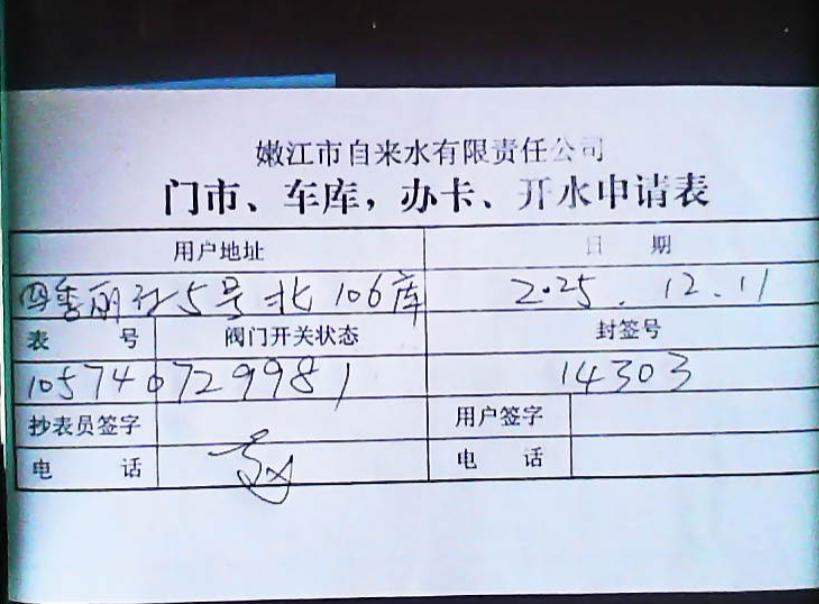 嫩江市自来水有限责任公司
门市、车库，办卡、开水申请表
用户地址 日 期
四季丽 5号北106库 2025.12.11
表 号 阀门开关状态 封签号
105740729981 14303
抄表员签字 用户签字
电 话 电 话